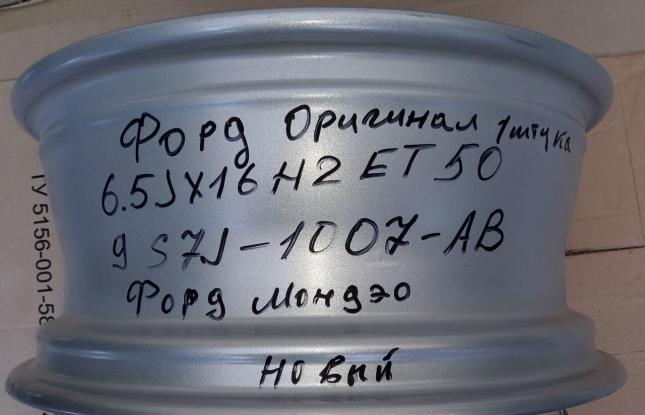 Форд Оригинал 1штука
6.5JX16 H2 ET 50
9 S7J-1007-AB
Форд Мондэо
Новый
ТУ 5156-001-58